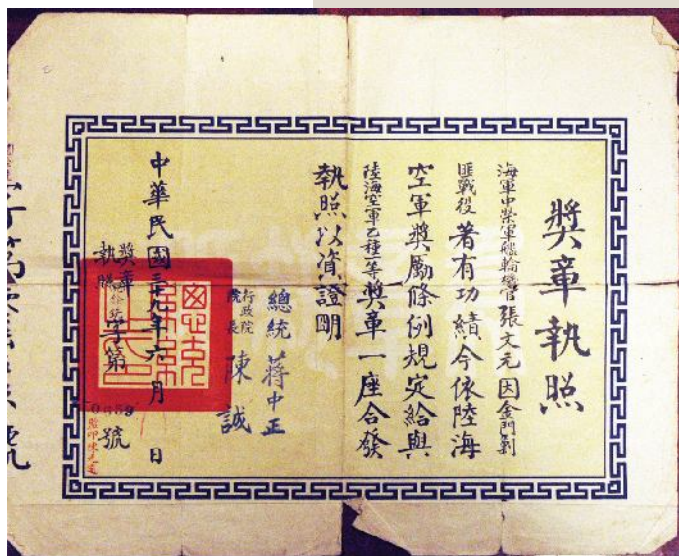 獎章執照
海軍中榮軍艦輪機官張文元因金門剿
匪戰役著有功績今依陸海
空軍獎勵條例規定給與
陸海空軍乙種一等獎章一座合發
執照以資證明
總統 蔣中正
行政院院長 陳誠
中華民國三十九年六月 日
獎章執照 字第 號